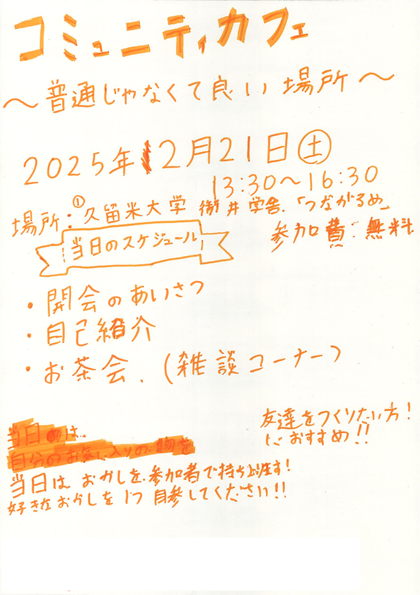 コミュニティカフェ
～普通じゃなくて良い場所～
2025年12月21日(土)
13:30～16:30
場所:①久留米大学 御井学舎.「つながるめ」
参加費:無料
当日のスケジュール
・開会のあいさつ
・自己紹介
・お茶会.(雑談コーナー)
友達をつくりたい方!
におすすめ!!
当日のは..
自分のお気に入りの物を
当日はおかしを参加者で持ち寄ります!
好きなおかしを1つ持参してください!!